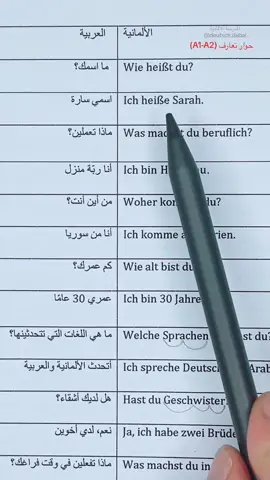 العربية الألمانية
حوار تعارف (A1-A2)
ما اسمك؟ Wie heißt du?
اسمي سارة Ich heiße Sarah.
ماذا تعملين؟ Was du beruflich?
أنا ربّة منزل Ich bin
من أين أنت؟ Woher du?
أنا من سوريا Ich komme
كم عمرك؟ Wie alt bist
عمري 30 عامًا Ich bin 30 Jahre
ما هي اللغات التي تتحدثينها؟ Welche Sprachen du?
أتحدث الألمانية والعربية Ich spreche
هل لديك أشقاء؟ Hast du Geschwister
نعم، لدي أخوين Ja, ich habe zwei
ماذا تفعلين في وقت فراغك؟ Was machst du in